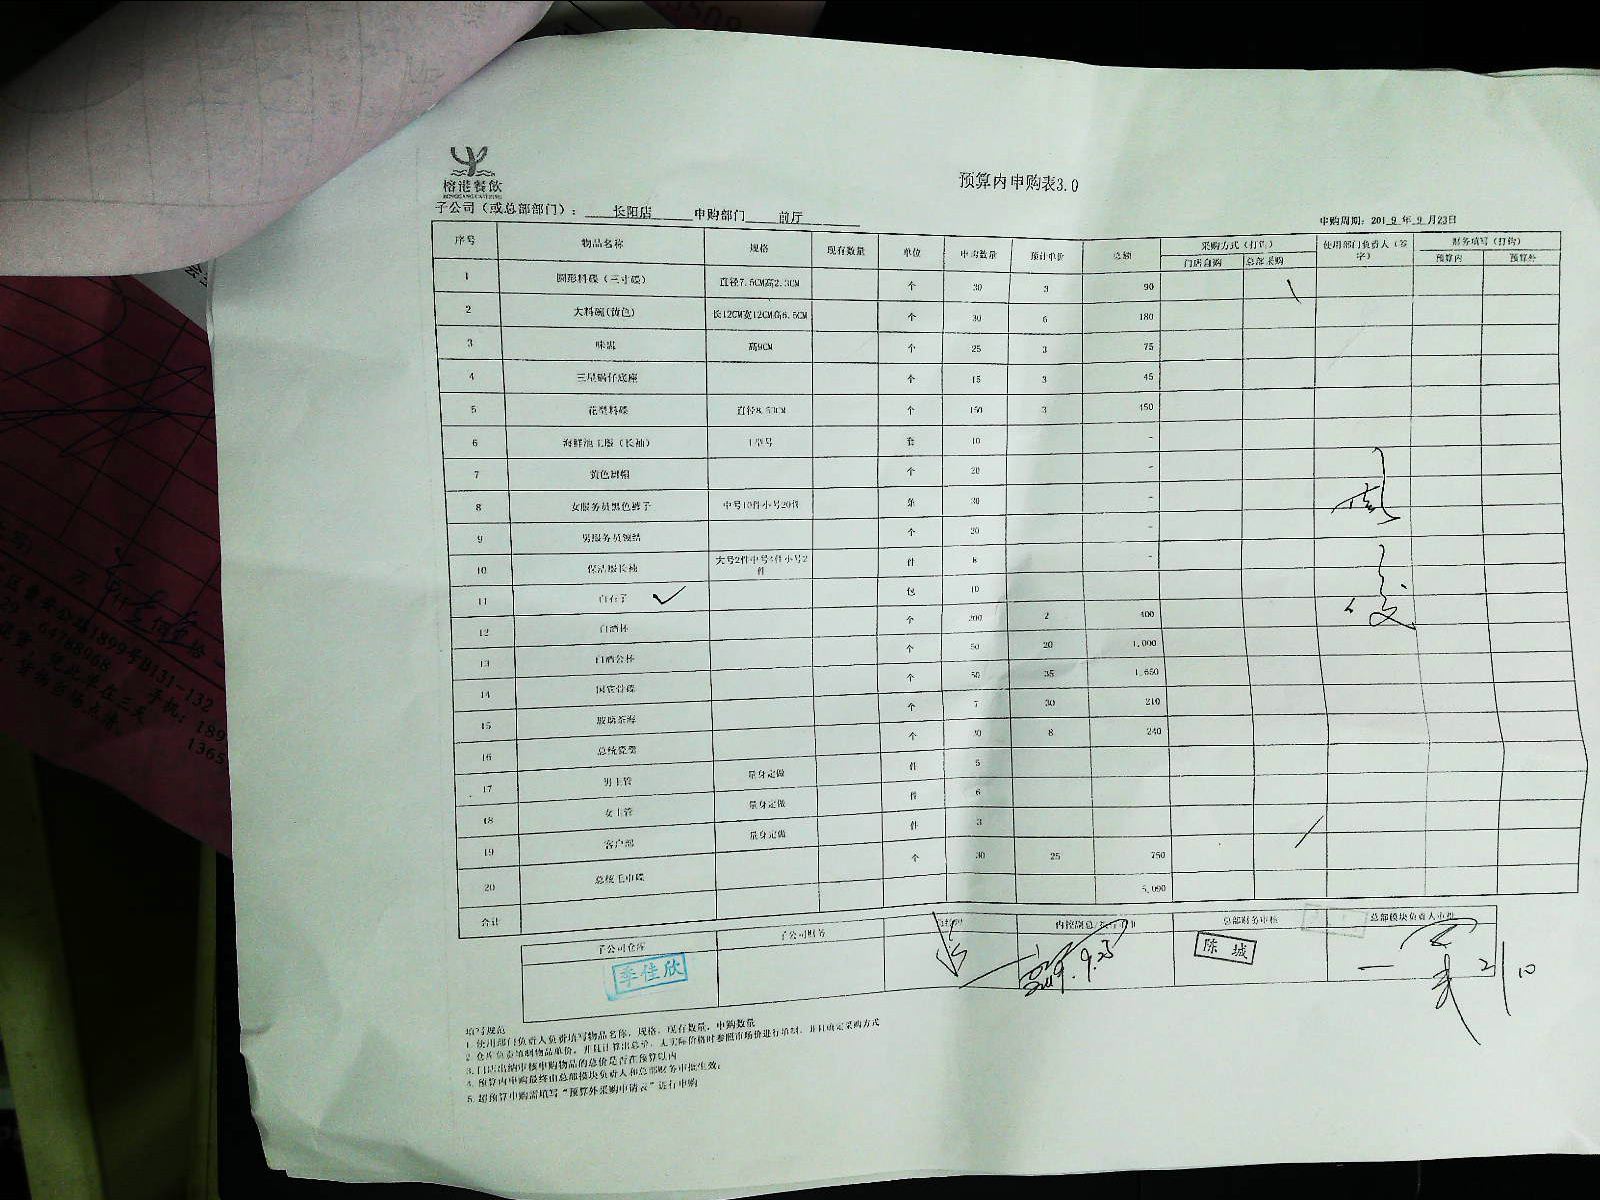 榕港餐飲
预算内申购表3.0
子公司（或总部部门）： 长阳店 申购部门 前厅
申购周期：2019年9月23日
序号 物品名称 规格 现有数量 单位 申购数量 预计单价 总额 采购方式（打钩） 使用部门负责人（签字） 财务填写（打钩）
门店自购 总部采购 预算内 预算外
1 圆形料碟（三寸碟） 直径7.5CM高2.3CM 个 30 3 90
2 大料碗(黄色) 长12CM宽12CM高6.5CM 个 30 6 180
3 味盅 高9CM 个 25 3 75
4 三星锅仔底座 个 15 3 45
5 花型料碟 直径8.53CM 个 150 3 450
6 海鲜池工服（长袖） 套 10 -
7 黄色围帽 个 20 -
8 女服务员黑色裤子 中号10件小号20件 条 30 -
9 男服务员领结 个 20 -
10 保洁服长袖 大号2件中号4件小号2件 件 8 -
11 白石子 包 10
12 白酒杯 个 200 2 400
13 白酒公杯 个 50 20 1,000
14 国宾骨碟 个 50 35 1,650
15 玻璃茶海 个 7 30 210
16 总统瓷更 个 30 8 240
17 男主管 量身定做 件 5
18 女主管 量身定做 件 6
19 客户部 量身定做 件 3
20 总统毛巾碟 个 30 25 750
合计 5,090
子公司仓库 子公司财务 总部财务审核 总部模块负责人审批
季佳欣
2019.9.25
陈城
21/10
填写规范
1.使用部门负责人负责填写物品名称，规格，现有数量，申购数量
2.仓库负责填制物品单价，并且计算出总额，无实际价格时参照市场价进行填制，并且确定采购方式
3.门店出纳审核申购物品的总价是否在预算以内
4.预算内申购最终由总部模块负责人和总部财务审批生效；
5.超预算申购需填写“预算外采购申请表”进行申购
1899号B131-132
64788968 手机：189
1365